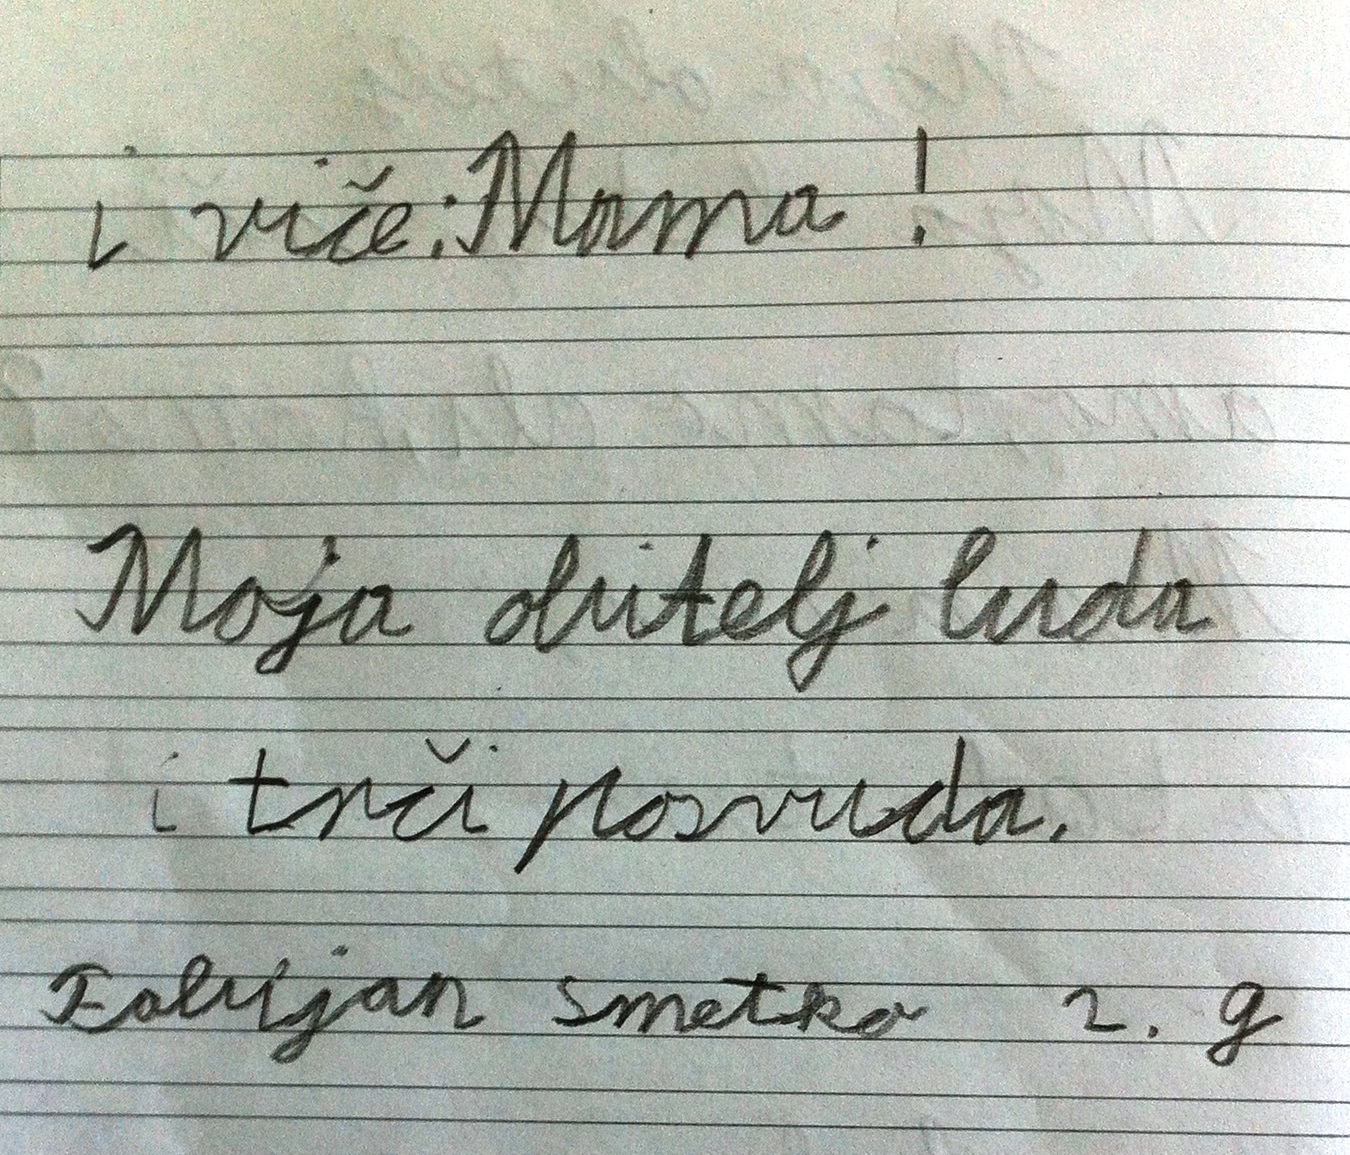 i viče: Mama!
Moja obitelj luda
i trči posvuda.
Fabijan Smetko 2. g